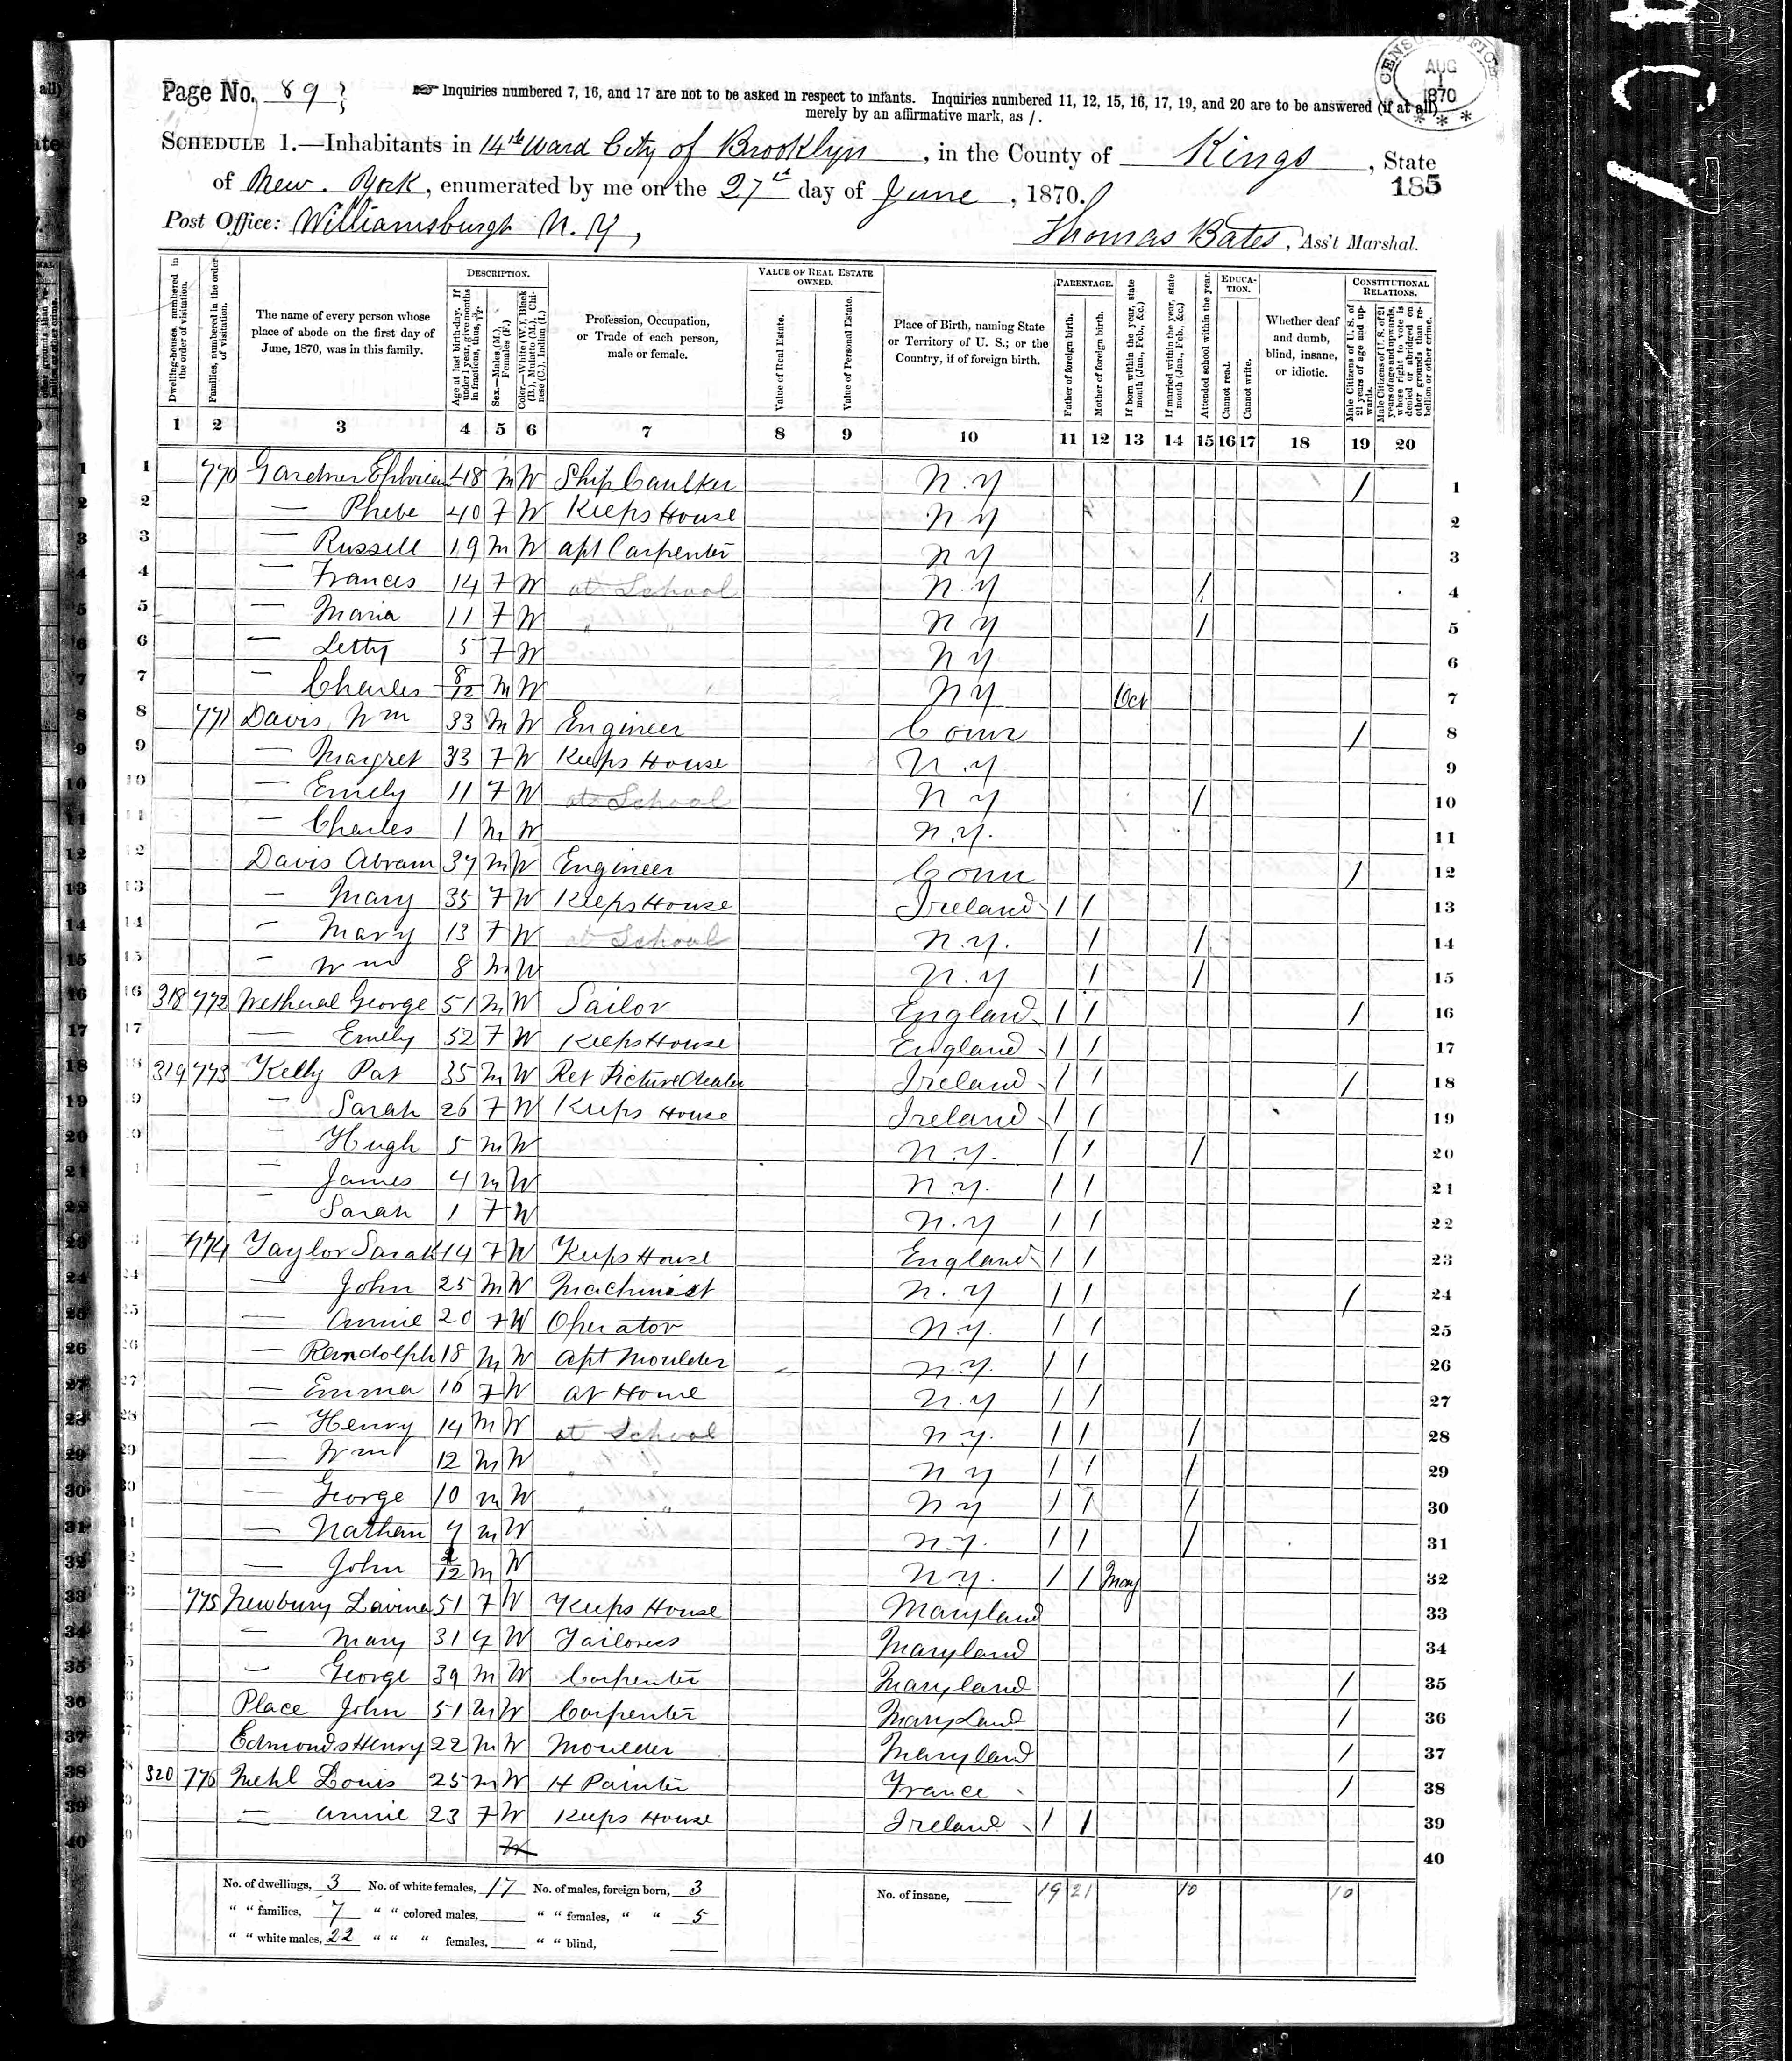 Page No. 89
☞ Inquiries numbered 7, 16, and 17 are not to be asked in respect to infants. Inquiries numbered 11, 12, 15, 16, 17, 19, and 20 are to be answered (if at all)
merely by an affirmative mark, as /.
CENSUS OFFICE
AUG
1
1870
SCHEDULE 1.—Inhabitants in 14th Ward City of Brooklyn, in the County of Kings, State
of New York, enumerated by me on the 27th day of June, 1870.
185
Post Office: Williamsburgh N. Y,
Thomas Bates, Ass't Marshal.
Dwelling-houses, numbered in the order of visitation.
Families, numbered in the order of visitation.
The name of every person whose place of abode on the first day of June, 1870, was in this family.
DESCRIPTION.
Age at last birth-day. If under 1 year, give months in fractions, thus, 3/12.
Sex.—Males (M.), Females (F.)
Color.—White (W.), Black (B.), Mulatto (M.), Chinese (C.), Indian (I.)
Profession, Occupation, or Trade of each person, male or female.
VALUE OF REAL ESTATE OWNED.
Value of Real Estate.
Value of Personal Estate.
Place of Birth, naming State or Territory of U. S.; or the Country, if of foreign birth.
PARENTAGE.
Father of foreign birth.
Mother of foreign birth.
If born within the year, state month (Jan., Feb., &c.)
If married within the year, state month (Jan., Feb., &c.)
Attended school within the year.
EDUCATION.
Cannot read.
Cannot write.
Whether deaf and dumb, blind, insane, or idiotic.
CONSTITUTIONAL RELATIONS.
Male Citizens of U. S. of 21 years of age and upwards.
Male Citizens of U. S. of 21 years of age and upwards, whose right to vote is denied or abridged on other grounds than rebellion or other crime.
1 2 3 4 5 6 7 8 9 10 11 12 13 14 15 16 17 18 19 20
1 770 Gardner Ephriam 48 M W Ship Caulker N. Y / 1
2 — Phebe 40 F W Keeps House N Y 2
3 — Russell 19 M W apt Carpenter N Y 3
4 — Frances 14 F W at School N. Y / 4
5 — Maria 11 F W " " N Y / 5
6 — Letty 5 F W N Y 6
7 — Charles 8/12 M W N Y Oct 7
8 771 Davis Wm 33 M W Engineer Conn / 8
9 — Margret 33 F W Keeps House N. Y 9
10 — Emely 11 F W at School N Y / 10
11 — Charles 1 M W N. Y. 11
12 Davis Abram 37 M W Engineer Conn / 12
13 — Mary 35 F W Keeps House Ireland / / 13
14 — Mary 13 F W at School N. Y. / / 14
15 — Wm 8 M W N. Y / / 15
16 318 772 George 51 M W Sailor England / / / 16
17 — Emely 52 F W Keeps House England / / 17
18 319 773 Kelly Pat 35 M W Ret Picture Dealer Ireland / / / 18
19 — Sarah 26 F W Keeps House Ireland / / 19
20 — Hugh 5 M W N. Y. / / / 20
21 — James 4 M W N. Y. / / 21
22 — Sarah 1 F W N. Y / / 22
23 774 Taylor Sarah F W Keeps House England / / 23
24 — John 25 M W Machinist N. Y / / / 24
25 — Annie 20 F W Operator N. Y. / / 25
26 — Randolph 18 M W Apt Moulder N. Y. / / 26
27 — Emma 16 F W at Home N. Y / / 27
28 — Henry 14 M W at School N. Y. / / / 28
29 — Wm 12 M W " " N Y / / / 29
30 — George 10 M W " " N Y / / / 30
31 — Nathan 7 M W N. Y. / / / 31
32 — John M W N Y. / / May 32
33 775 Newbury Lavina 51 F W Keeps House Maryland 33
34 — Mary 31 F W Tailoress Maryland 34
35 — George 39 M W Carpenter Maryland / 35
36 Place John 51 M W Carpenter MaryLand / 36
37 Edmonds Henry 22 M W Moulder Maryland / 37
38 320 776 Mehl Louis 25 M W H Painter France / 38
39 — Annie 23 F W Keeps House Ireland / / 39
40 40
No. of dwellings, 3 No. of white females, 17 No. of males, foreign born, 3 No. of insane, 19 21 10 10
" " families, 7 " " colored males, " " females, " " 5
" " white males, 22 " " " females, " " blind,